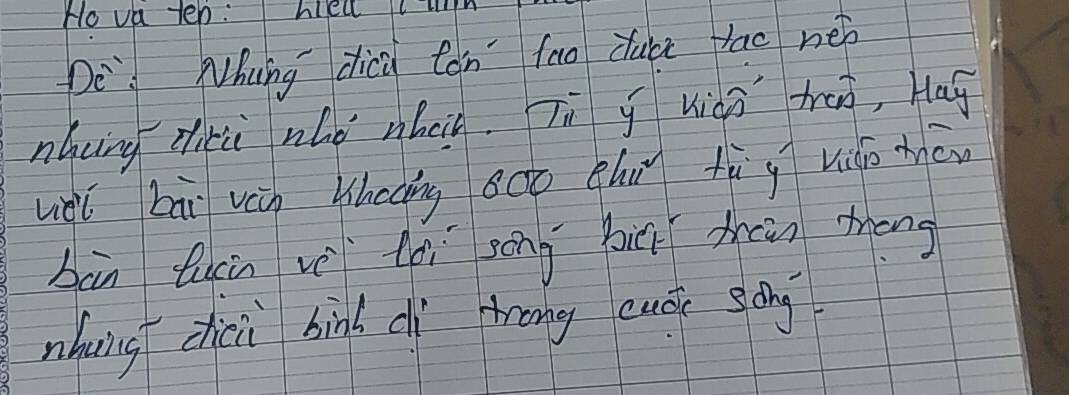 Họ và tên:
Đề: Những điều lớn lao được tạc nên
những điều nhỏ nhặt. Từ ý kiến trên, Hãy
viết bài văn khoảng 600 chữ từ ý kiến trên
bàn luận về lối sống biết trân trọng
những điều bình dị trong cuộc sống.